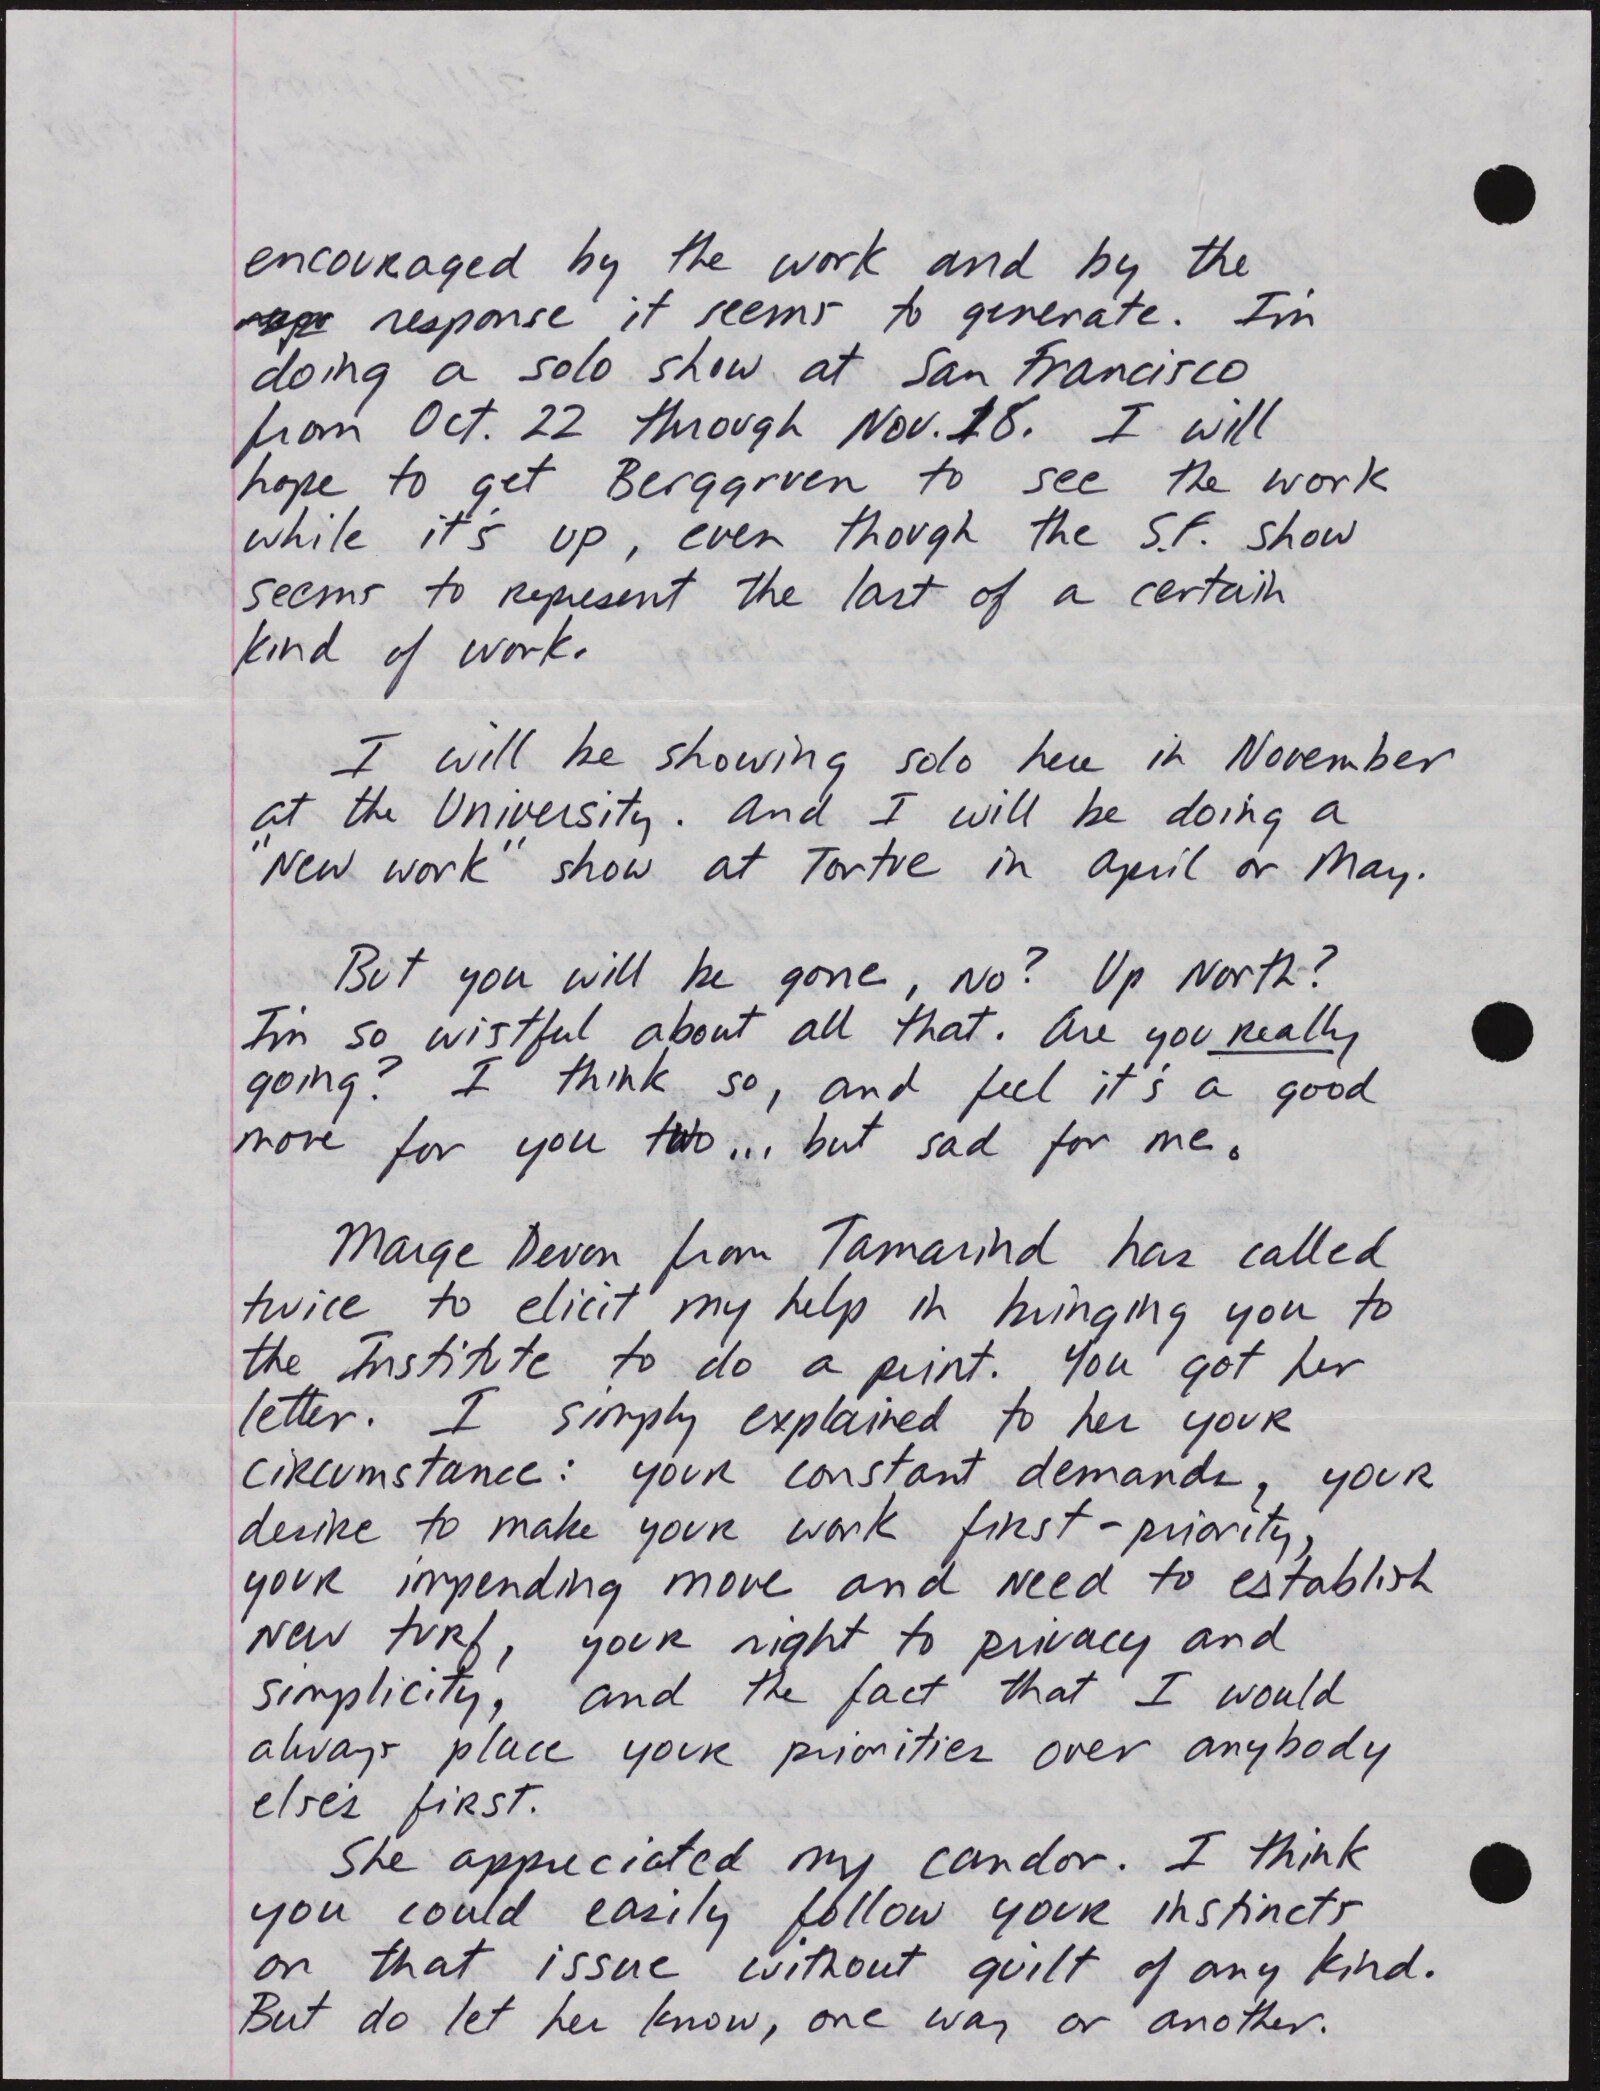 encouraged by the work and by the
response it seems to generate. I'm
doing a solo show at San Francisco
from Oct. 22 through Nov. 18. I will
hope to get Berggruen to see the work
while it's up, even though the S.F. show
seems to represent the last of a certain
kind of work.
I will be showing solo here in November
at the University. And I will be doing a
"New work" show at Tortue in April or May.
But you will be gone, no? Up North?
I'm so wistful about all that. Are you really
going? I think so, and feel it's a good
move for you two... but sad for me.
Marge Devon from Tamarind has called
twice to elicit my help in bringing you to
the Institute to do a print. You got her
letter. I simply explained to her your
circumstance: your constant demands, your
desire to make your work first-priority,
your impending move and need to establish
new turf, your right to privacy and
simplicity, and the fact that I would
always place your priorities over anybody
else's first.
She appreciated my candor. I think
you could easily follow your instincts
on that issue without guilt of any kind.
But do let her know, one way or another.